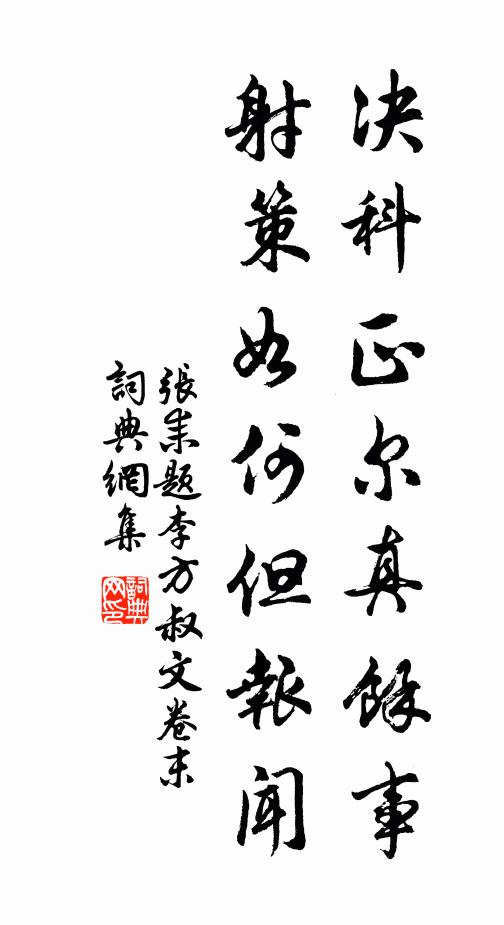 决科正尔真餘事
射策如何但報聞
張耒題李方叔文卷末
詞典網集
詞典
网印